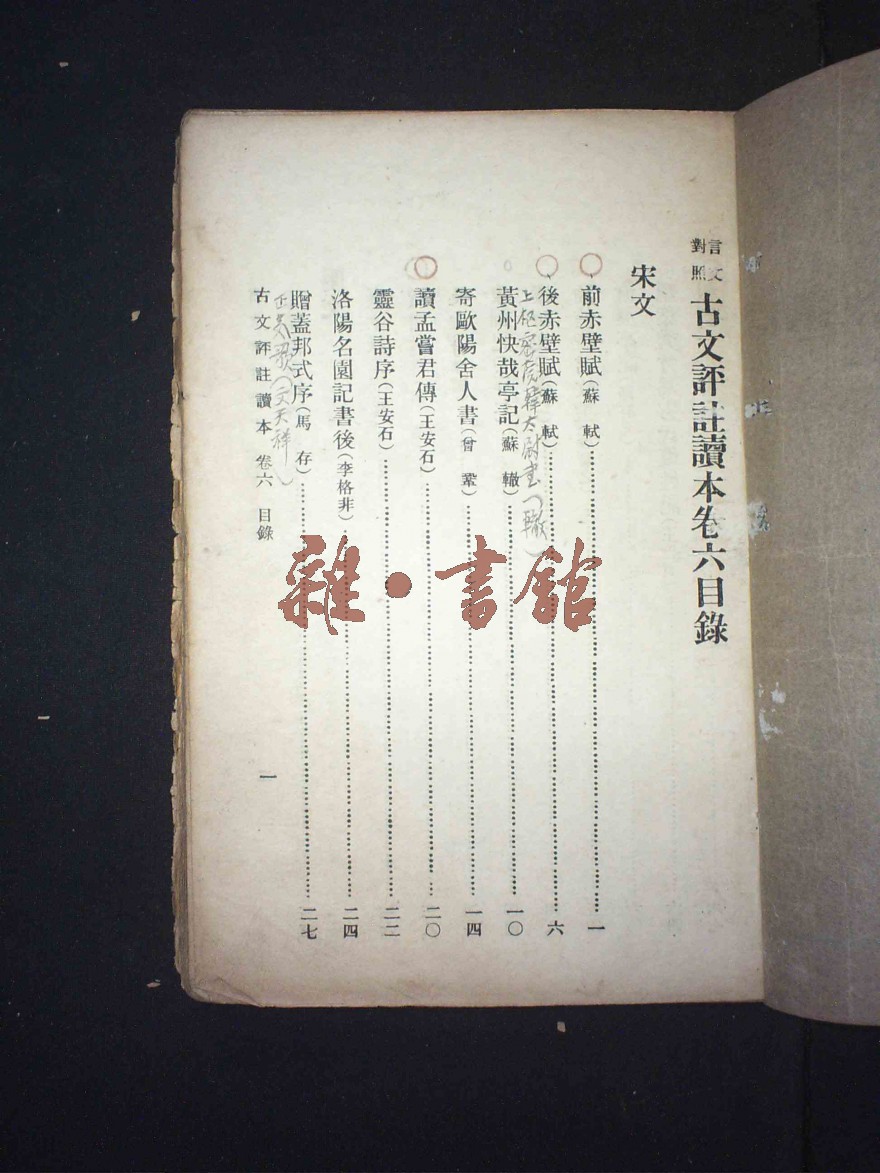 言文對照 古文評註讀本卷六目錄
宋文
前赤壁賦(蘇軾)……一
後赤壁賦(蘇軾)……六
上樞密院韓太尉書(轍)
黃州快哉亭記(蘇轍)……一〇
寄歐陽舍人書(曾鞏)……一四
讀孟嘗君傳(王安石)……二〇
靈谷詩序(王安石)……二二
洛陽名園記書後(李格非)……二四
贈蓋邦式序(馬存)……二七
正气歌(文天祥)
古文評註讀本 卷六 目錄
一
雜·書館